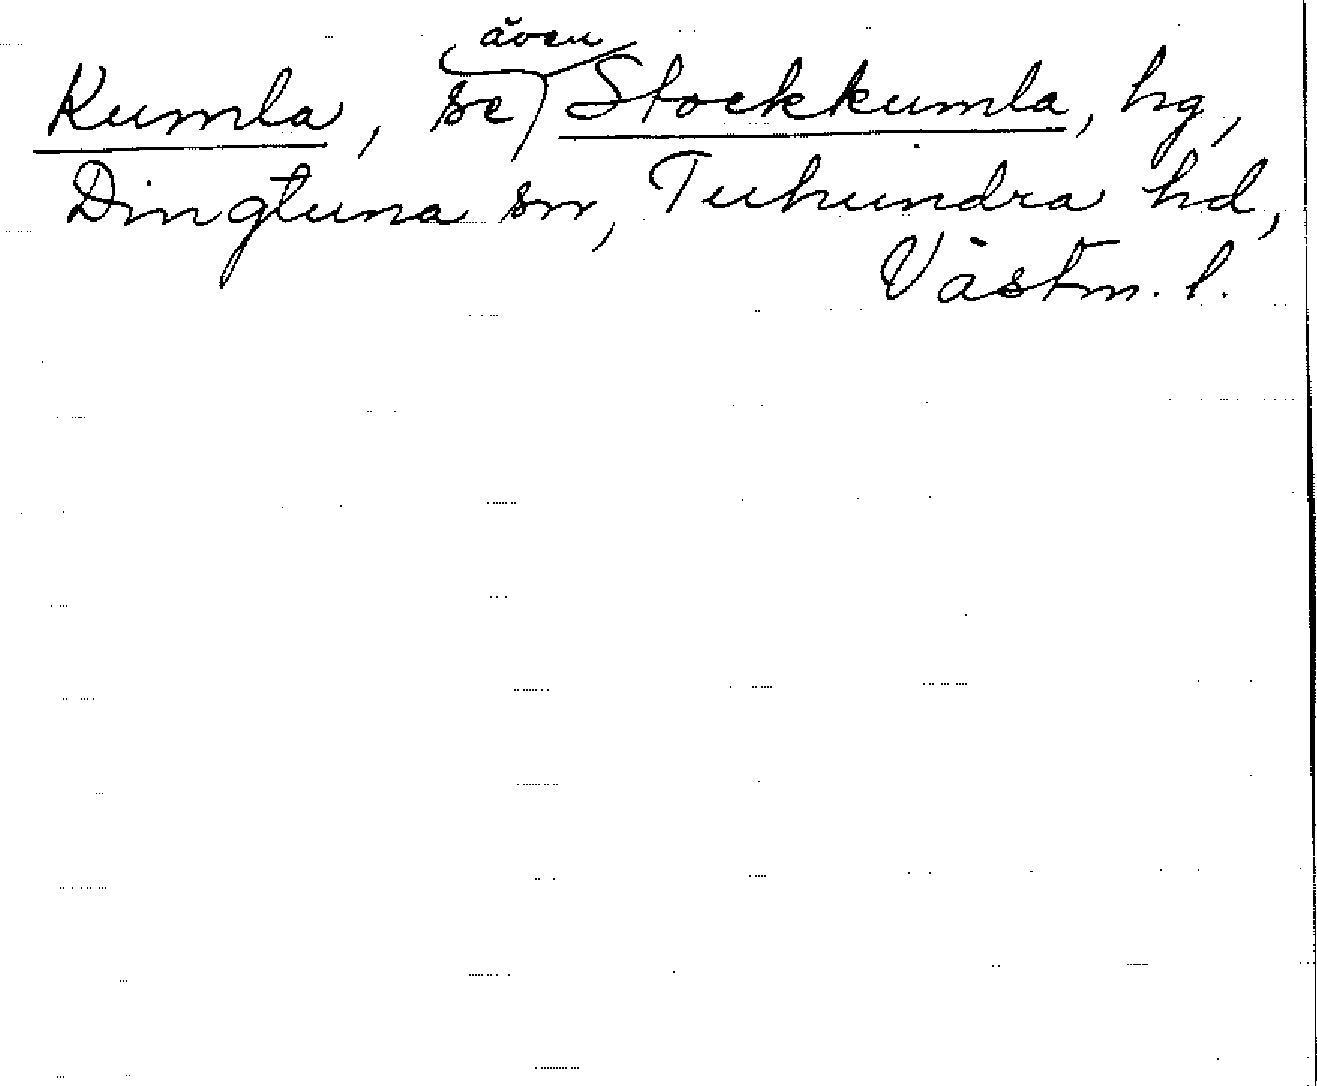 Kumla, se även Stockkumla, hg,
Dingtuna sn, Tuhundra hd,
Västm. l.